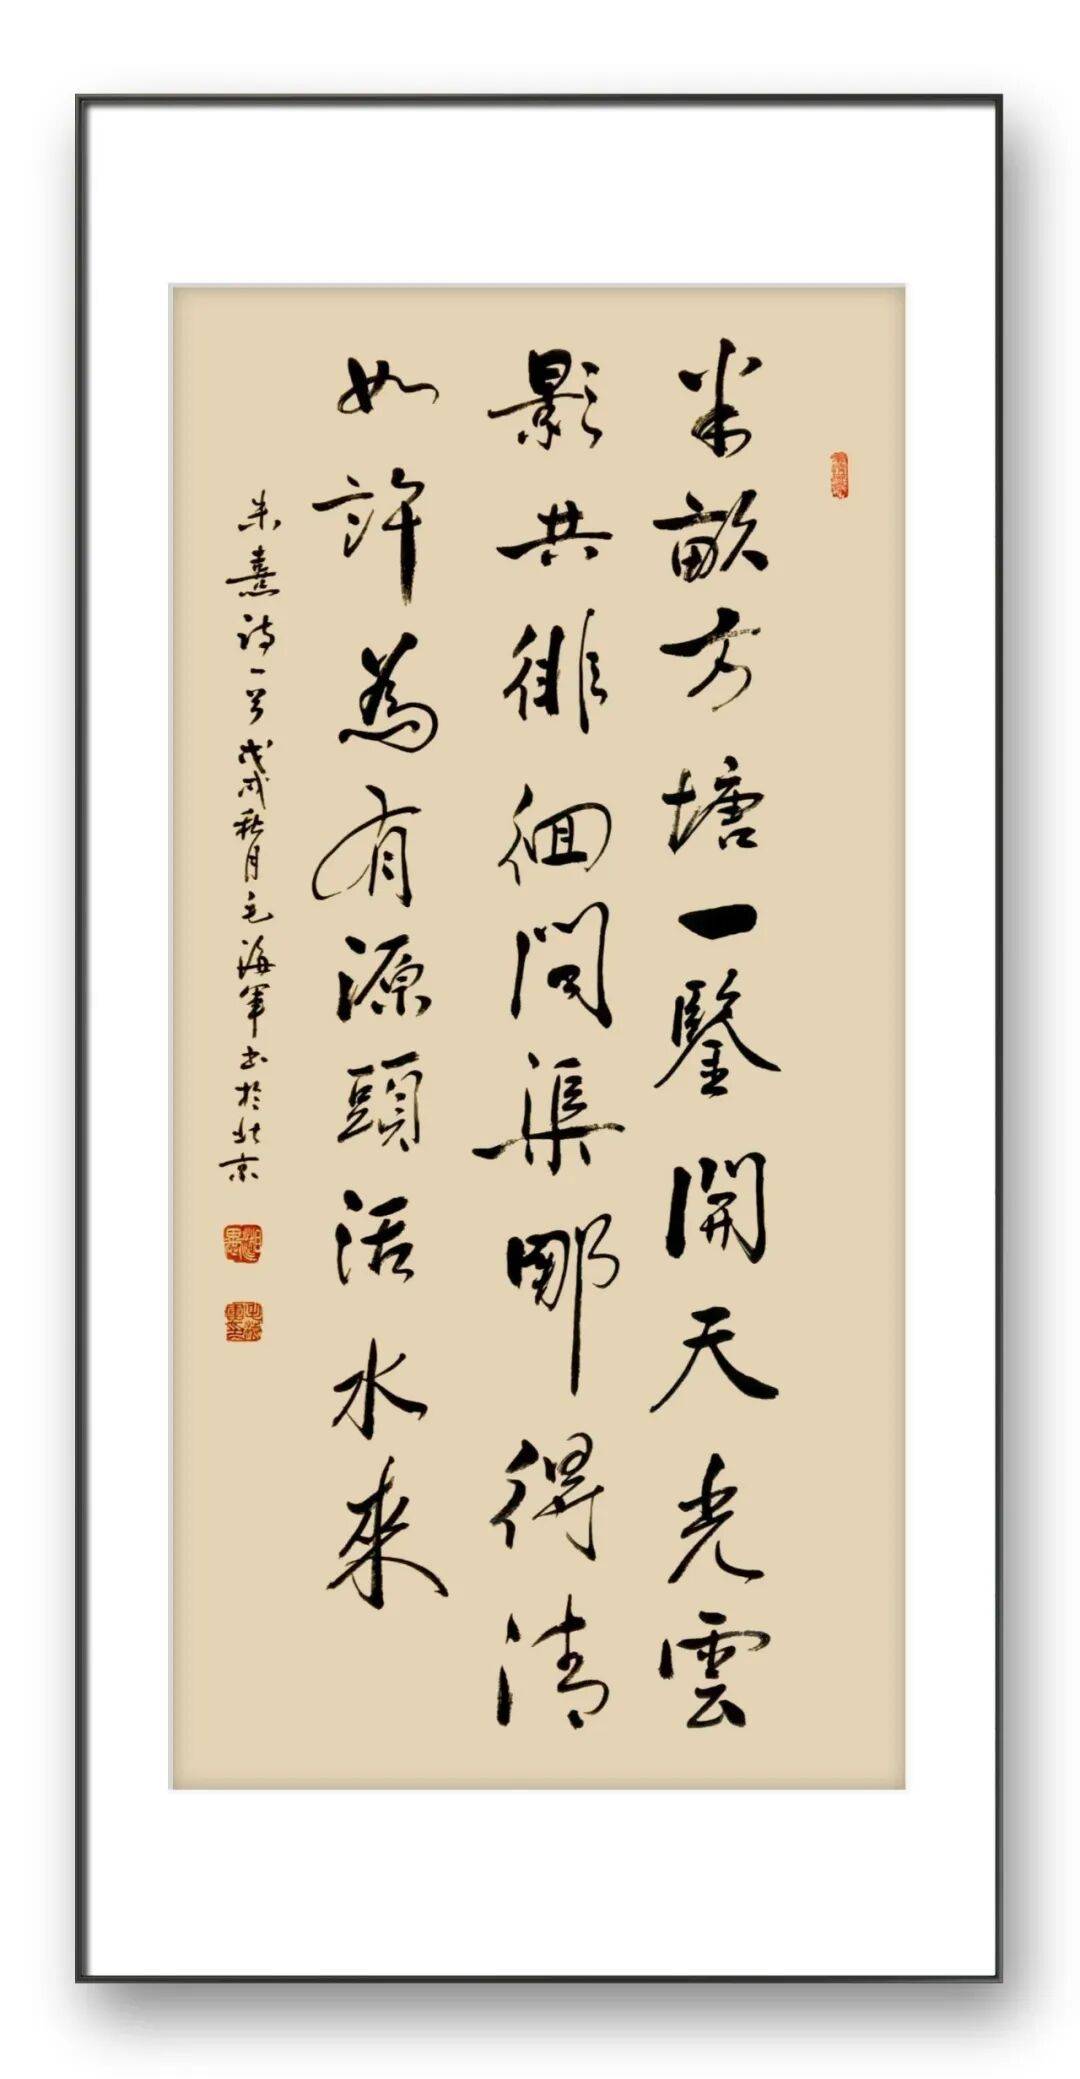 半畝方塘一鑒開天光雲
影共徘徊問渠那得清
如許為有源頭活水來
朱熹詩一首戊戌秋月毛海軍書於北京